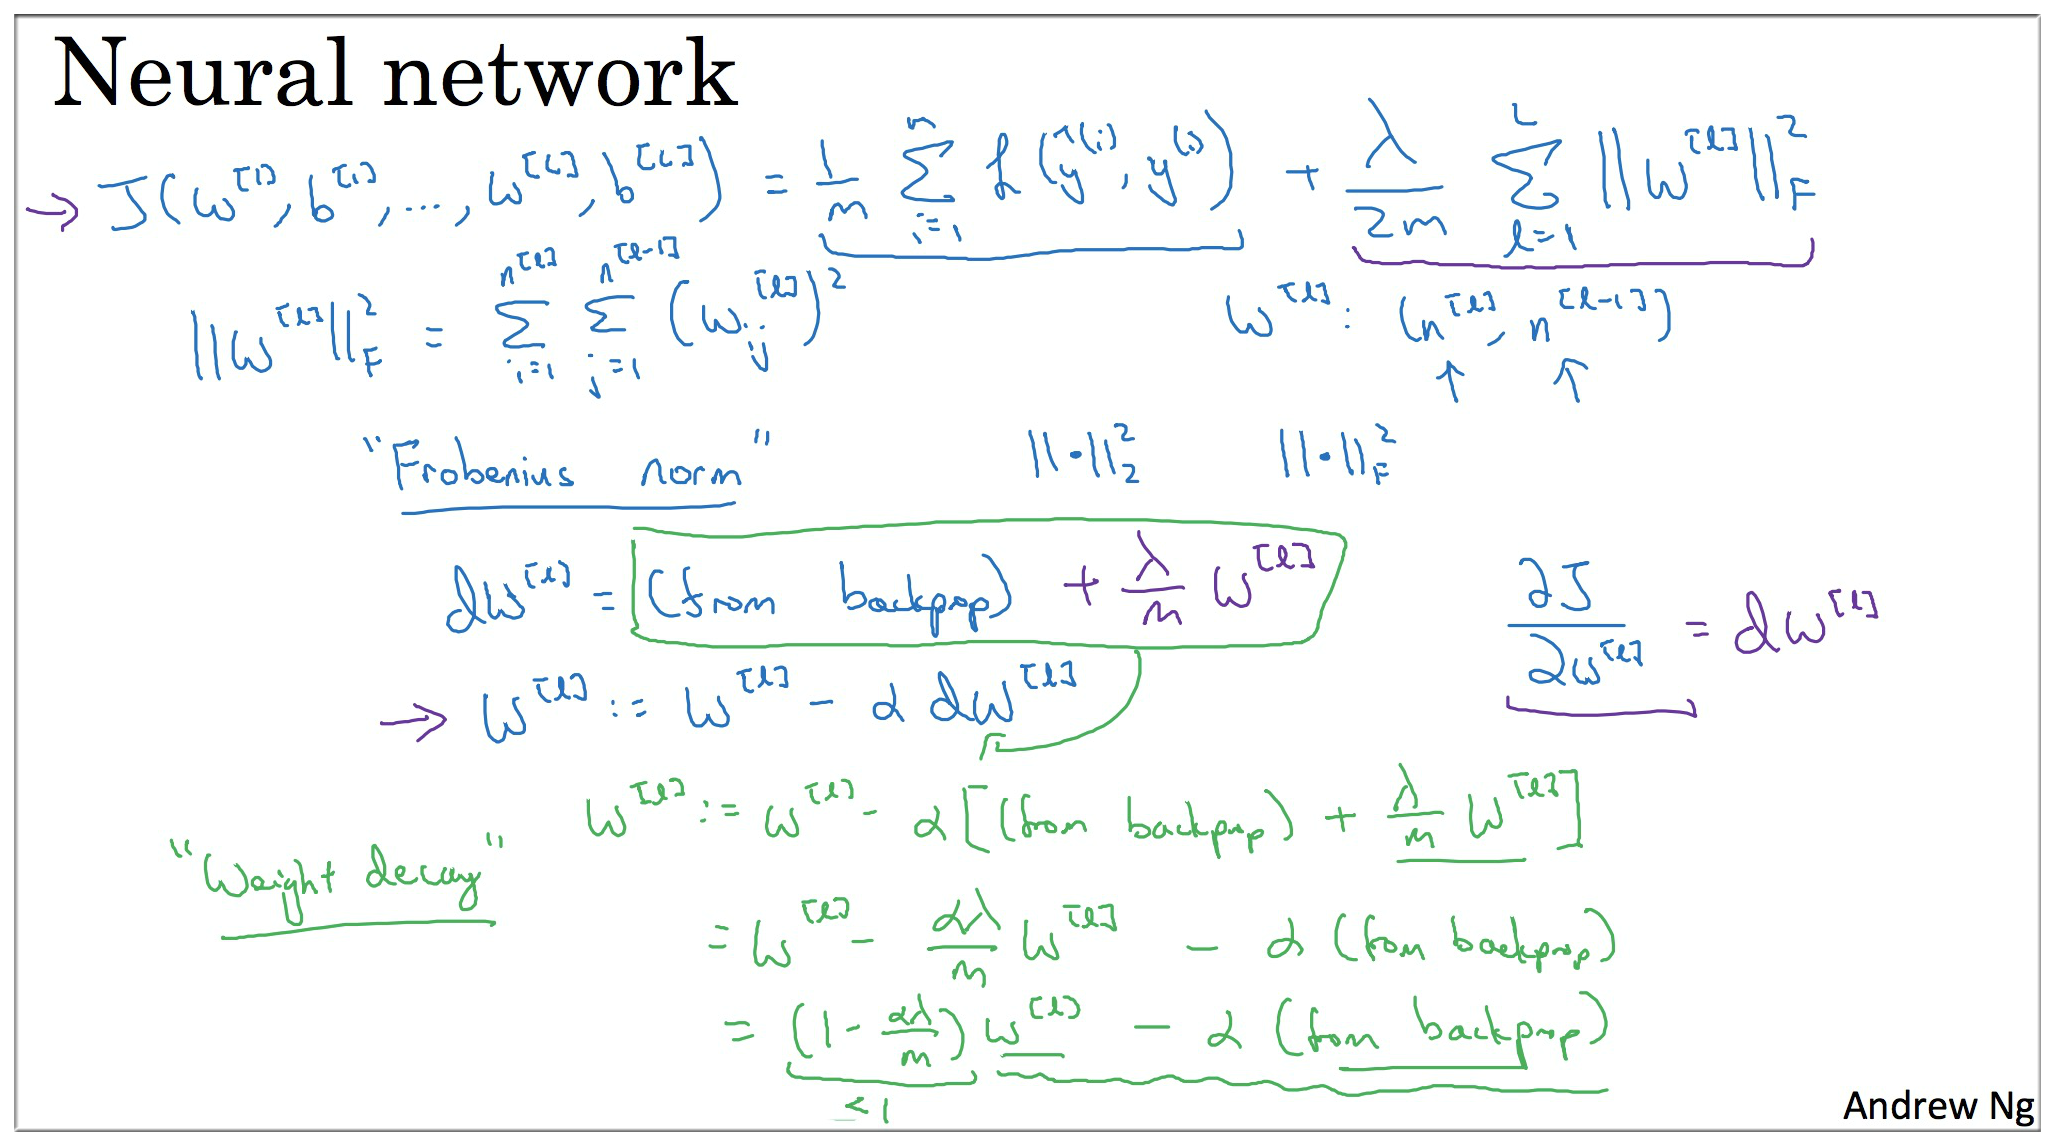 Neural network
→ J(w^[1], b^[1], ..., w^[L], b^[L]) = 1/m Σ_{i=1}^{m} L(ŷ^(i), y^(i)) + λ/2m Σ_{l=1}^{L} ||w^[l]||_F^2
||w^[l]||_F^2 = Σ_{i=1}^{n^[l]} Σ_{j=1}^{n^[l-1]} (w_ij^[l])^2 w^[l]: (n^[l], n^[l-1])
↑ ↑
"Frobenius norm" ||·||_2^2 ||·||_F^2
dw^[l] = (from backprop) + λ/m w^[l] ∂J/∂w^[l] = dw^[l]
→ w^[l] := w^[l] - α dw^[l]
w^[l] := w^[l] - α[(from backprop) + λ/m w^[l]]
"Weight decay"
= w^[l] - αλ/m w^[l] - α (from backprop)
= (1 - αλ/m) w^[l] - α (from backprop)
<1
Andrew Ng